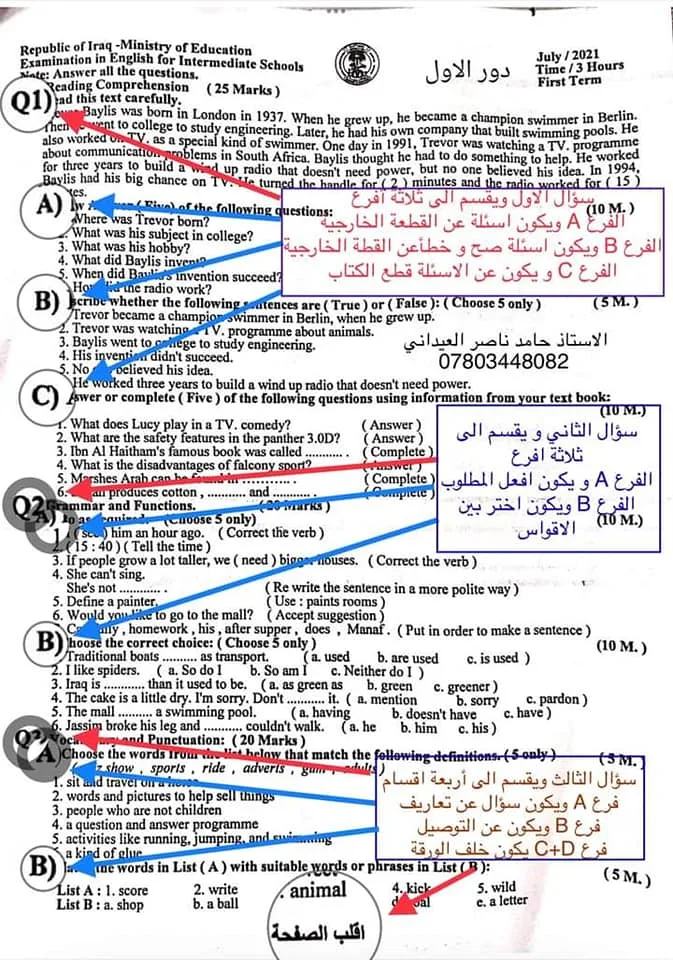 Republic of Iraq -Ministry of Education
Examination in English for Intermediate Schools
Note: Answer all the questions.
Reading Comprehension ( 25 Marks )
دور الاول
July / 2021
Time / 3 Hours
First Term
Q1)
ad this text carefully.
Baylis was born in London in 1937. When he grew up, he became a champion swimmer in Berlin.
Then went to college to study engineering. Later, he had his own company that built swimming pools. He
also worked on TV. as a special kind of swimmer. One day in 1991, Trevor was watching a TV. programme
about communication problems in South Africa. Baylis thought he had to do something to help. He worked
for three years to build a wind up radio that doesn't need power, but no one believed his idea. In 1994,
Baylis had his big chance on TV. He turned the handle for ( 2 ) minutes and the radio worked for ( 15 )
tes.
A)
( Five) of the following questions:
(10 M.)
Where was Trevor born?
What was his subject in college?
3. What was his hobby?
4. What did Baylis invent?
5. When did Baylis's invention succeed?
did the radio work?
سؤال الاول ويقسم الى ثلاثة أفرع
الفرع A ويكون اسئلة عن القطعة الخارجية
الفرع B ويكون اسئلة صح و خطأعن القطة الخارجية
الفرع C و يكون عن الاسئلة قطع الكتاب
B)
scribe whether the following sentences are ( True ) or ( False ): ( Choose 5 only )
(5 M. )
Trevor became a champion swimmer in Berlin, when he grew up.
2. Trevor was watching a TV. programme about animals.
3. Baylis went to college to study engineering.
4. His invention didn't succeed.
5. No believed his idea.
He worked three years to build a wind up radio that doesn't need power.
الاستاذ حامد ناصر العيداني
07803448082
C)
Answer or complete ( Five ) of the following questions using information from your text book:
(10 M.)
1. What does Lucy play in a TV. comedy? ( Answer )
2. What are the safety features in the panther 3.0D? ( Answer )
3. Ibn Al Haitham's famous book was called ........... ( Complete )
4. What is the disadvantages of falcony sport? (Answer)
5. Marshes Arab can be found in ........... ( Complete )
6. produces cotton , .......... and .......... (Complete )
سؤال الثاني و يقسم الى
ثلاثة افرع
الفرع A و يكون افعل المطلوب
الفرع B ويكون اختر بين
الاقواس
Q2
Grammar and Functions. (20 Marks )
A)
required: (Choose 5 only)
(10 M.)
1. ( see ) him an hour ago. ( Correct the verb )
2. ( 15 : 40 ) ( Tell the time )
3. If people grow a lot taller, we ( need ) bigger houses. ( Correct the verb )
4. She can't sing.
She's not ............ ( Re write the sentence in a more polite way )
5. Define a painter. ( Use : paints rooms )
6. Would you like to go to the mall? ( Accept suggestion )
, homework , his , after supper , does , Manaf. ( Put in order to make a sentence )
B)
hoose the correct choice: ( Choose 5 only )
(10 M. )
Traditional boats .......... as transport. ( a. used b. are used c. is used )
2. I like spiders. ( a. So do I b. So am I c. Neither do I )
3. Iraq is ............ than it used to be. ( a. as green as b. green c. greener )
4. The cake is a little dry. I'm sorry. Don't ........... it. ( a. mention b. sorry c. pardon )
5. The mall .......... a swimming pool. ( a. having b. doesn't have c. have )
6. Jassim broke his leg and ........... couldn't walk. ( a. he b. him c. his )
and Punctuation: ( 20 Marks )
A
Choose the words from the list below that match the following definitions. ( 5 only )
(5 M.
show , sports , ride , adverts , gum , adults )
1. sit and travel on a horse
2. words and pictures to help sell things
3. people who are not children
4. a question and answer programme
5. activities like running, jumping, and swimming
a kind of glue
سؤال الثالث ويقسم الى أربعة اقسام
فرع A ويكون سؤال عن تعاريف
فرع B ويكون عن التوصيل
فرع C+D يكون خلف الورقة
B)
the words in List ( A ) with suitable words or phrases in List ( B ):
(5 M. )
List A : 1. score 2. write . animal 4. kick 5. wild
List B : a. shop b. a ball e. a letter
اقلب الصفحة